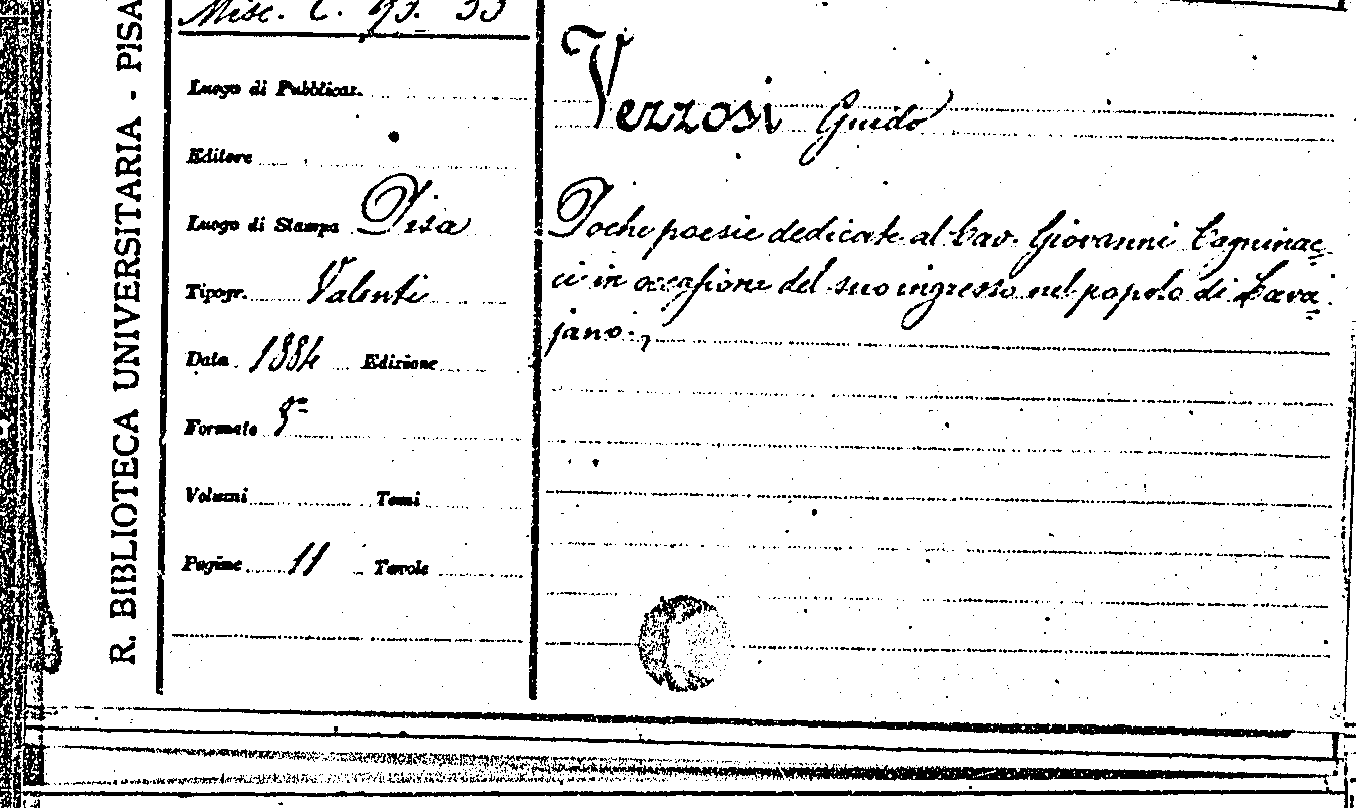 R. BIBLIOTECA UNIVERSITARIA - PISA
Misc. C. 93. 33
Luogo di Pubblicaz.
Editore
Luogo di Stampa Pisa
Tipogr. Valenti
Data 1884 Edizione
Formato 8°
Volumi Tomi
Pagine 11 Tavole
Vezzosi Guido
Poche poesie dedicate al Cav. Giovanni Cagninac-
ci in occasione del suo ingresso nel popolo di Cava-
jano.,